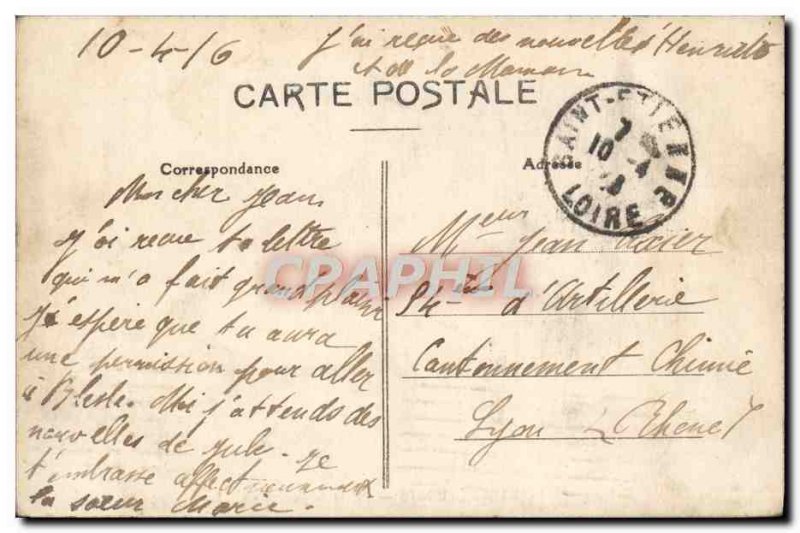 10-4-16 J'ai reçue des nouvelles d'Henriette
et de la Maman
CARTE POSTALE
SAINT-ETIENNE
7
10 -4
16
LOIRE
Correspondance
Adresse
Mon cher Jean,
J'ai recue ta lettre
qui m'a fait grand plaisir
J'espere que tu aura
une permission pour aller
à Blesle. Moi j'attends des
nouvelles de Jule. Je
t'embrasse affectueusement
ta sœur Marie.
Mr Jean
54 eme d'Artillerie
Cantonnement Chimie
Lyon Rhone
CPAPHIL